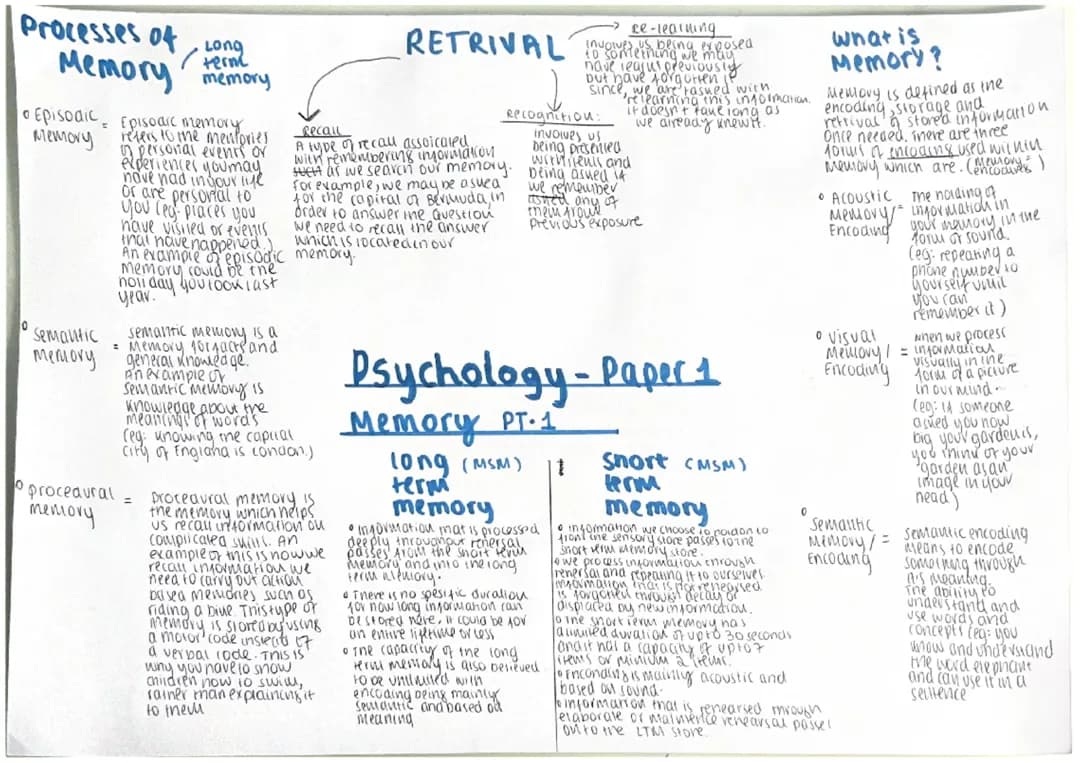 Processes of
Memory
Long
term
memory
Episodic
Memory
=
Episodic memory
refers to the memories
of personal events or
experiences you may
have had in your life
or are personal to
you (eg: places you
have visited or events
that have happened.)
An example of episodic
memory could be the
holiday you took last
year.
Semantic
memory
=
Semantic memory is a
memory for facts and
general knowledge.
An example of
semantic memory is
knowledge about the
meanings of words
(eg: knowing the capital
city of England is London.)
procedural
memory
=
Procedural memory is
the memory which helps
us recall information on
complicated skills. An
example of this is how we
recall information we
need to carry out action
based memories such as
riding a bike. This type of
memory is stored by using
a motor code instead of
a verbal code. This is
why you have to show
children how to swim,
rather than explaining it
to them
RETRIVAL
recall
A type of recall assoicated
with remembering information
such as we search our memory.
For example, we may be asked
for the capital of Bermuda, in
order to answer the question
we need to recall the answer
which is located in our
memory.
recognition:
involves us
being presented
with items and
being asked if
we remember
asked any of
them from
previous exposure
re-learning
involves us being exposed
to something we may
have learnt previously
but have forgotten it
since, we are tasked with
relearning this information.
it doesn't take long as
we already knew it.
Psychology - Paper 1
Memory PT.1
long (MSM)
term
memory
Information that is processed
deeply throughout rehersal
passes from the short term
memory and into the long
term memory.
There is no spesific duration
for how long information can
be stored here, it could be for
an entire lifetime or less
The capacity of the long
term memory is also believed
to be unlimited with
encoding being mainly
semantic and based on
meaning
short (MSM)
term
memory
information we choose to
from the sensory store passes to the
short term memory store.
we process information through
rehersal and repeating it to ourselves.
information that is not rehearsed
is forgotten through decay or
displaced by new information.
The short term memory has
a limited duration of up to 30 seconds
and it has a capacity of up to 7
items or minium 2 items.
Enconding is mainly acoustic and
based on sound.
Information that is rehearsed through
elaborate or rehearsal passes
onto the LTM store.
What is
Memory?
Memory is defined as the
encoding, storage and
retrival of stored information
once needed. There are three
forms of encoding used within
memory which are.
Acoustic
Memory/
Encoding
=
The holding of
information in
your memory in the
form of sound.
(eg: repeating a
phone number to
yourself until
you can
remember it)
Visual
Memory/
Encoding
=
when we process
information
visually in the
form of a picture
in our mind.
(eg: if someone
asked you how
big your garden is,
you think of your
garden as an
image in your
head)
Semantic
Memory/
Encoding
=
semantic encoding
means to encode
something through
it's meaning.
The ability to
understand and
use words and
concepts (eg: you
know and understand
the word elephant
and can use it in a
sentence